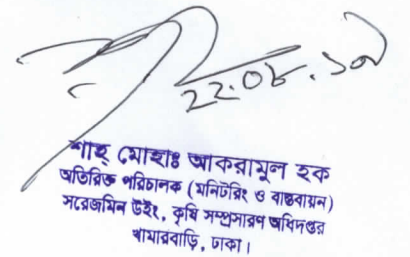 ২২.০৮.১৭
শাহ্ মোহাঃ আকরামুল হক
অতিরিক্ত পরিচালক (মনিটরিং ও বাস্তবায়ন)
সরেজমিন উইং, কৃষি সম্প্রসারণ অধিদপ্তর
খামারবাড়ি, ঢাকা।